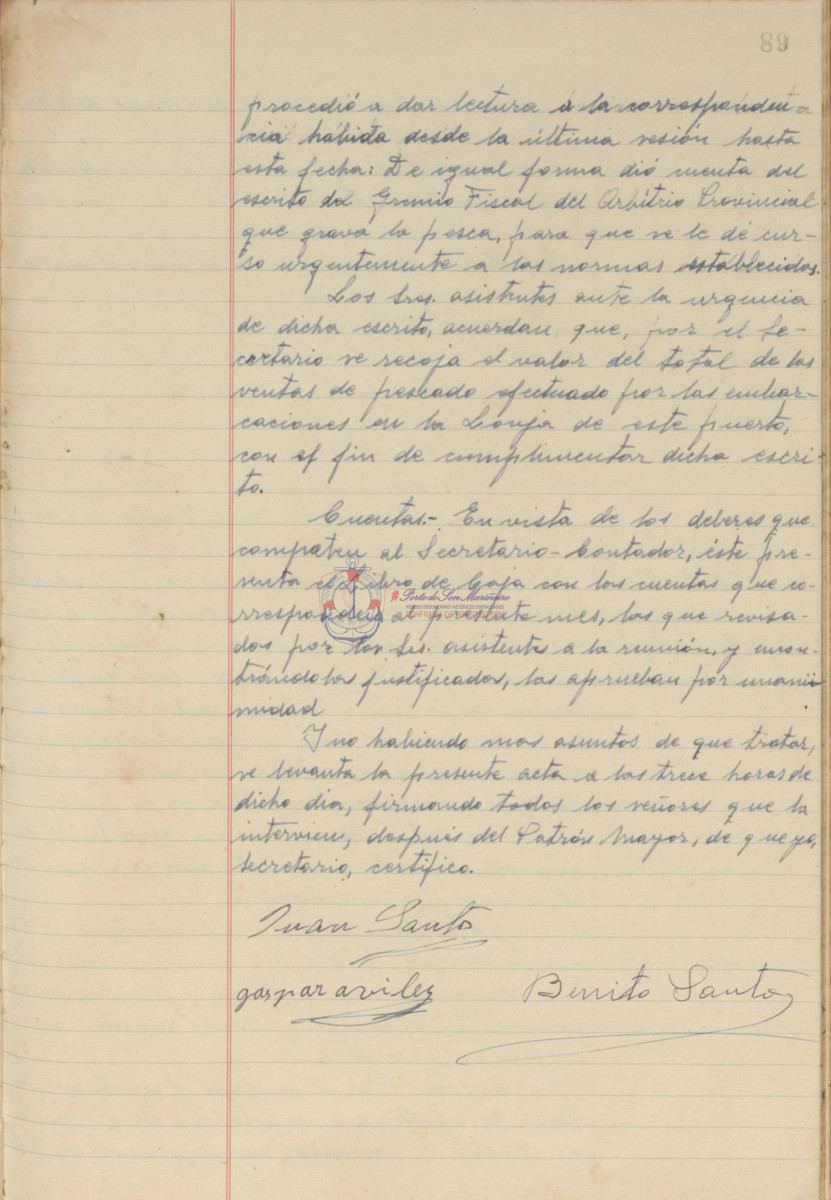 89
procedió a dar lectura a la correspondenten
cia habida desde la última sesión hasta
esta fecha: De igual forma dió cuenta del
escrito del Gremio Fiscal del Arbítrio Provincial
que grava la pesca, para que se le dé cur-
so urgentemente a las normas establecidas.
Los Sres. asistentes ante la urgencia
de dicha escrito, acuerdan que, por el Se-
cretario se recoja el valor del total de las
ventas de pescado efectuado por las embar-
caciones en la Lonja de este puerto,
con el fin de cumplimentar dicha escri-
to.
Cuentas.- En vista de los deberes que
competen al Secretario-Contador, éste pre-
senta el Libro de Caja con las cuentas que co-
rresponden al presente mes, las que revisa-
das por los Sres. asistentes a la reunión, y encon-
trándolas justificadas, las aprueban por unani-
midad
Y no habiendo mas asuntos de que tratar,
se levanta la presente acta a las trece horas de
dicho dia, firmando todos los señores que la
intervien, después del Patrón Mayor, de que yo,
secretario, certifico.
Juan Santos
gaspar avilez Benito Santos
Porto de Son Mariñeiro